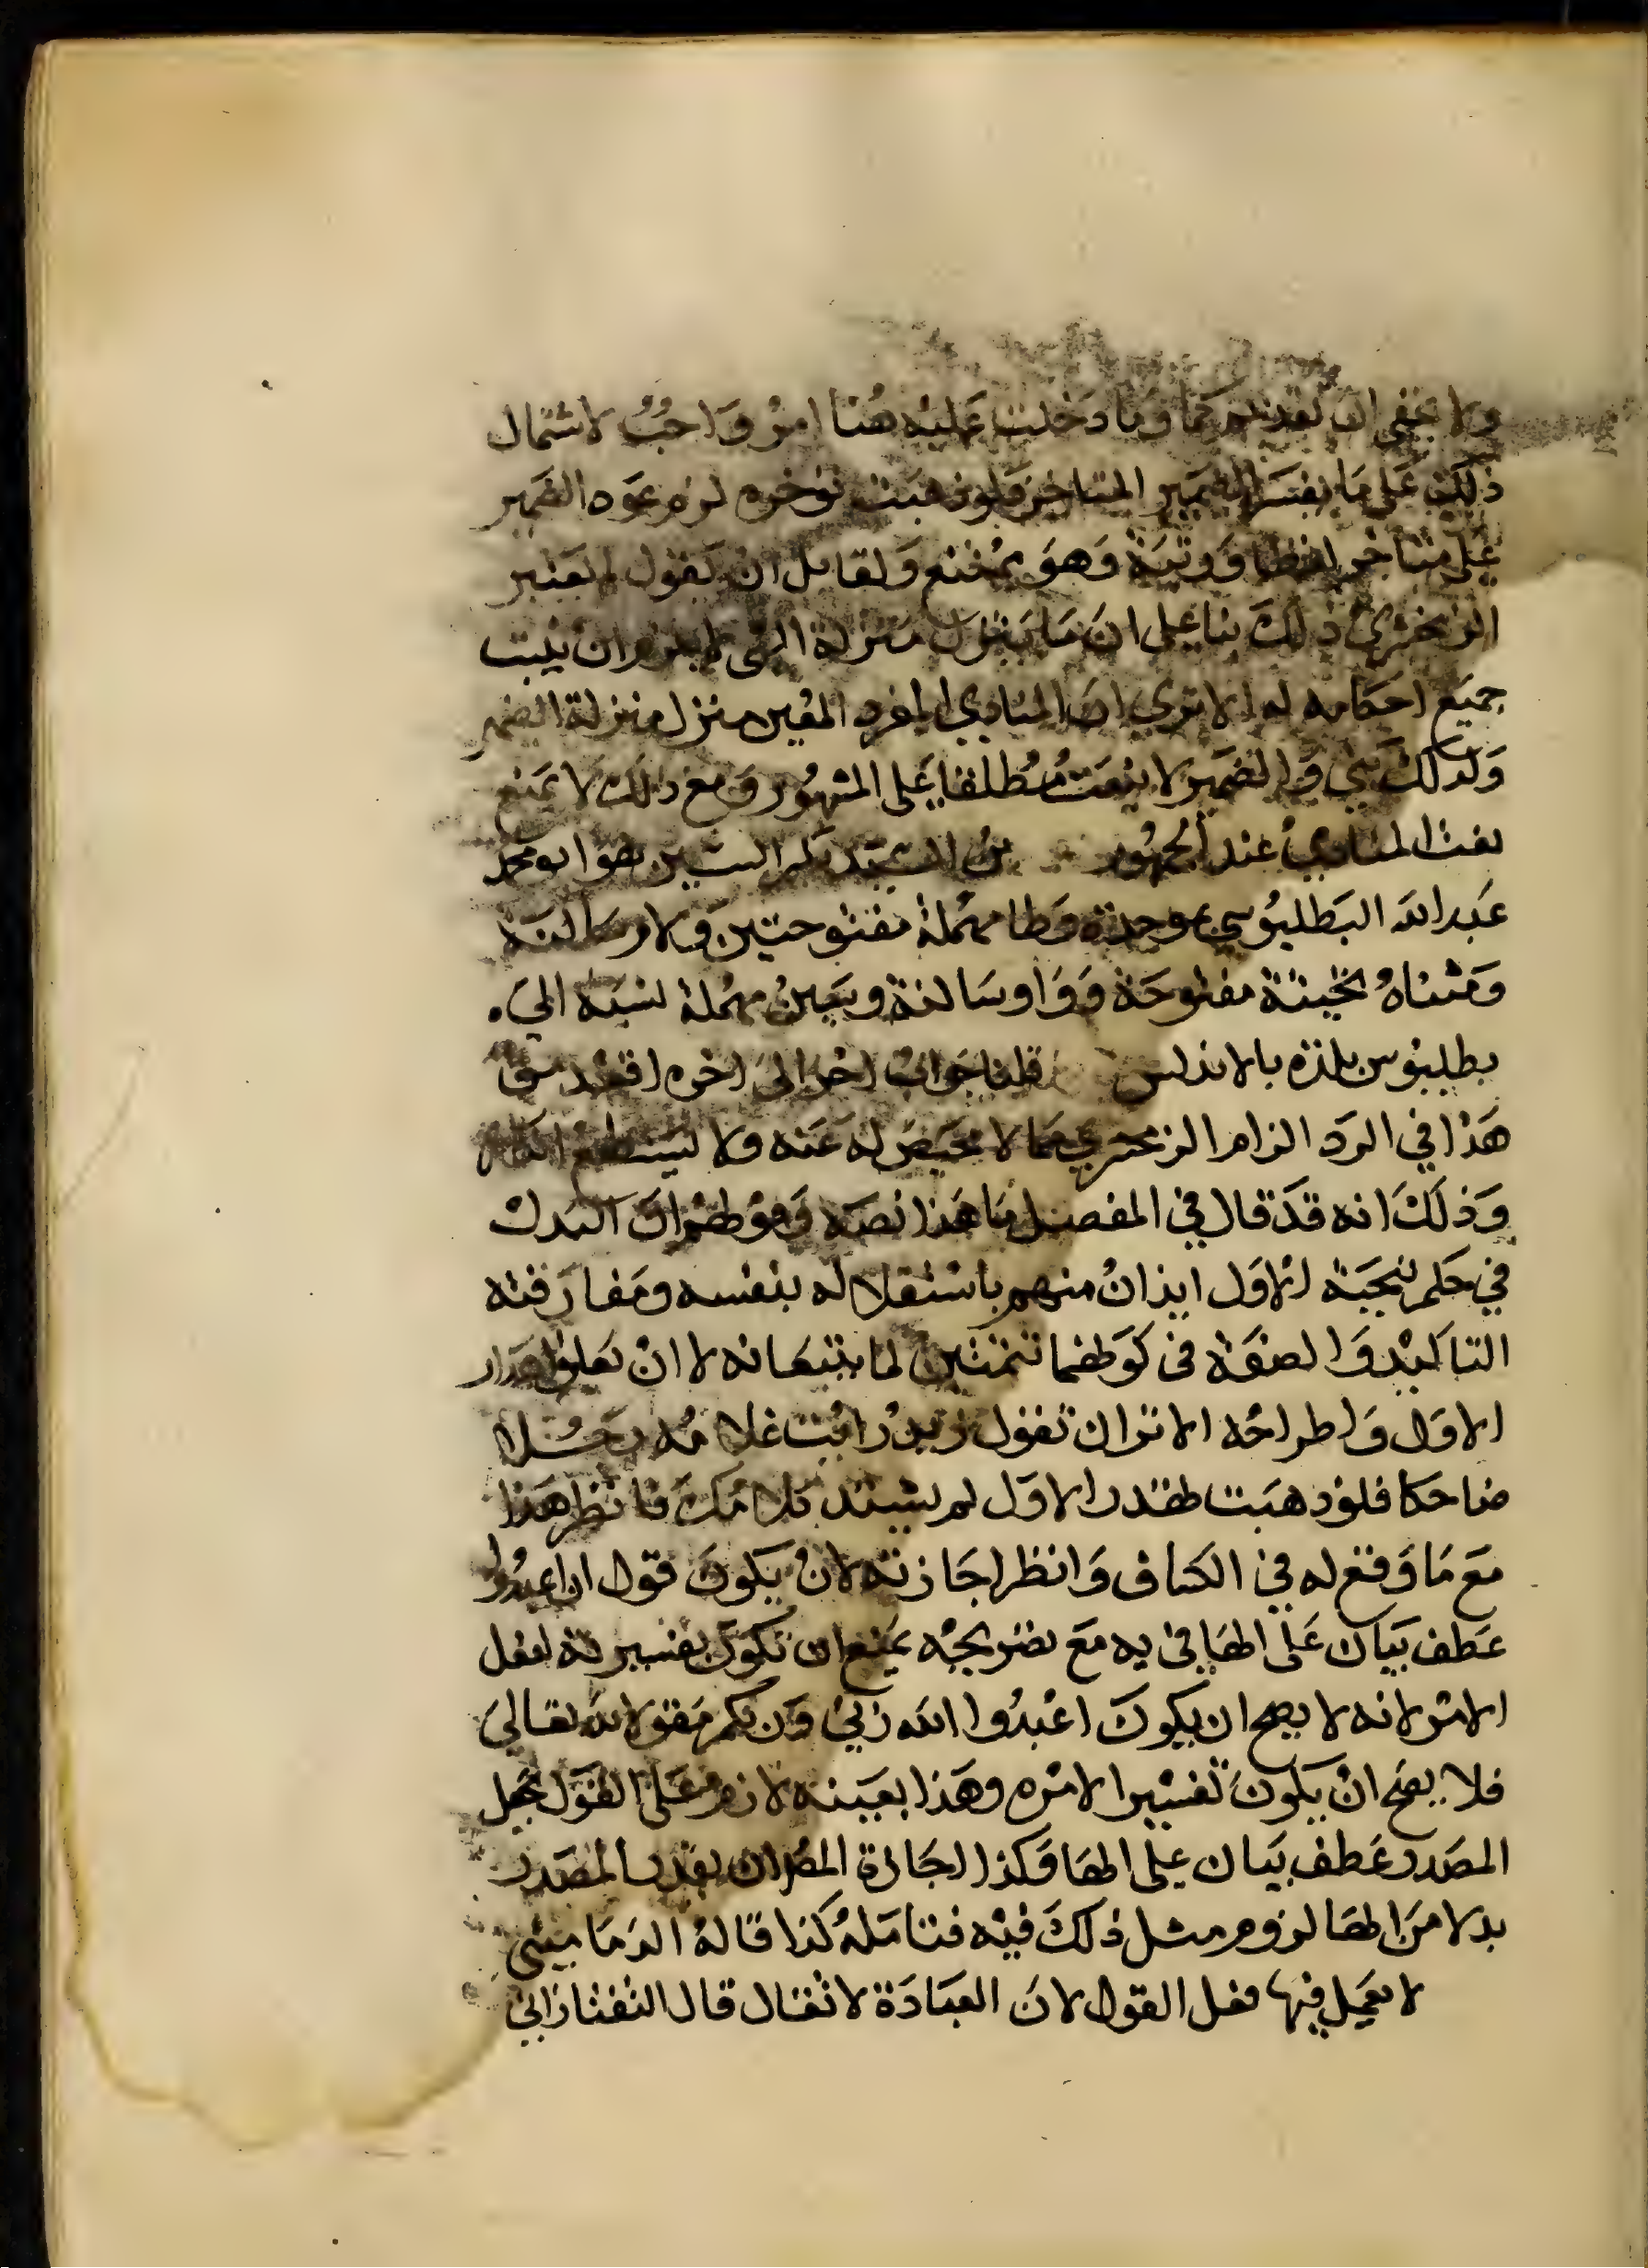 ولا يخفى ان تقديم كما وما دخلت عليه هنا امر واجب لاشتمال
ذلك على ما يفسر الضمير المتاخر فلو ذهبت توخره لزم عود الضمير
على متاخر لفظا ورتبة وهو ممتنع ولقايل ان يقول لم يعتبر
الزمخشري ذلك بنا على ان ما ينزل منزلة الشي لا يلزم ان يثبت
جميع احكامه له الا ترى ان المنادى المفرد المعين منزل منزلة الضمير
ولذلك بني والضمير لا ينعت مطلقا على المشهور ومع ذلك لا يمتنع
نعت المنادى عند الجمهور بن السيد بكسر السين هو ابو محمد
عبد الله البطليوسي بموحدة وطا مهملة مفتوحتين ولام ساكنة
ومثناة تحتية مفتوحة وواو ساكنة وسين مهملة نسبة الى
بطليوس بلدة بالاندلس قلنا جواب اخر الى اخره اقعد من
هذا في الرد الزام الزمخشري بما لا محيص له عنه ولا يستطيع
وذلك انه قد قال في المفصل ما هذا نصه وقولهم ان البدل
في حكم تنحية الاول ايذان منهم باستقلاله بنفسه ومفارقته
التاكيد والصفة في كونهما تتمتين لما يتبعانه لا ان يعنوا اهدار
الاول واطراحه الا تراك تقول زيد رايت غلامه رجلا
صالحا فلو ذهبت تهدر الاول لم يستد كلامك فانظر هذا
مع ما وقع له في الكشاف وانظر اجازته لان يكون قول ان اعبدوا
عطف بيان على الها في به مع تصريحه بمنع ان تكون تفسيرية لفعل
الامر لانه لا يصح ان يكون اعبدوا الله ربي وربكم مقولا لله تعالى
فلا يصح ان يكون تفسيرا لامره وهذا بعينه لازم على القول بجعل
المصدر عطف بيان على الها وكذا اجازة المص ان يقدر المصدر
بدلا من الها لزوم مثل ذلك فيه فتامله كذا قاله الدماميني
لا يعمل فيها فعل القول لان العبادة لا تقال قال التفتازاني